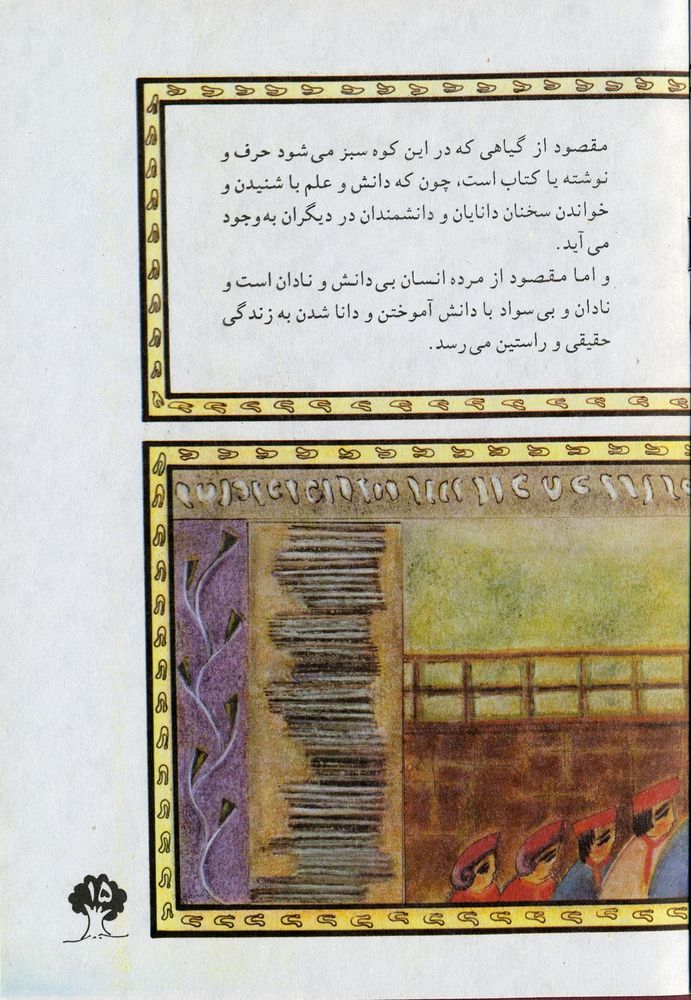 مقصود از گیاهی که در این کوه سبز می‌شود حرف و
نوشته یا کتاب است، چون که دانش و علم با شنیدن و
خواندن سخنان دانایان و دانشمندان در دیگران به‌وجود
می‌آید.
و اما مقصود از مرده انسان بی‌دانش و نادان است و
نادان و بی‌سواد با دانش آموختن و دانا شدن به زندگی
حقیقی و راستین می‌رسد.
۱۵